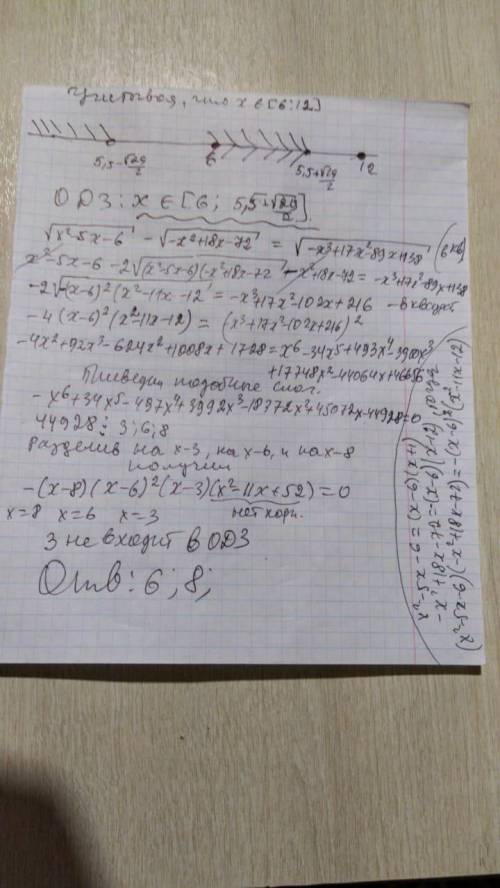 Учитывая, что x ∈ [6; 12]
5,5-√29/2   6   5,5+√29/2   12
ОДЗ: x ∈ [6; 5,5+√29/2].
√(x²-5x-6) - √(-x²+18x-72) = √(-x³+17x²-89x+138) (в кв)
x²-5x-6-2√((x²-5x-6)(-x²+18x-72)) - x²+18x-72 = -x³+17x²-89x+138
-2√(-(x-6)²(x²-11x-12)) = -x³+17x²-102x+216 - в квадрат
-4(x-6)²(x²-11x-12) = (x³+17x²-102x+216)²
-4x⁴+92x³-624x²+1008x+1728 = x⁶-34x⁵+493x⁴-3900x³
+17748x²-44064x+46656
Приведем подобные слаг.
-x⁶+34x⁵-497x⁴+3992x³-18372x²+45072x-44928=0
44928 ⋮ 3; 6; 8
Разделив на x-3, на x-6, и на x-8
получим
-(x-8)(x-6)²(x-3)(x²-11x+52)=0
x=8 x=6 x=3 нет корн.
3 не входит в ОДЗ
Отв: 6; 8;
x²-5x-6=(x-6)(x+1)
-x²+18x-72=(x-6)(x+12), тогда
(x²-5x-6)(-x²+18x-72)=-(x-6)²(x-11x-12)